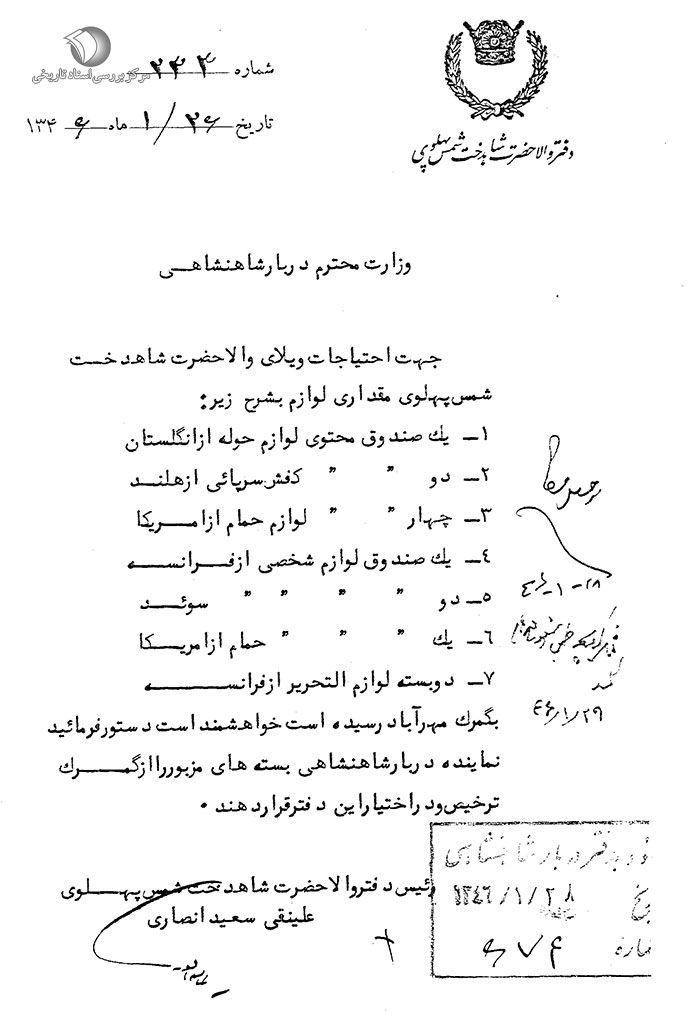 مرکز بررسی اسناد تاریخی
شماره ۲۴۲
تاریخ ۲۶ / ۱ ماه ۱۳۴۶
دفتر والاحضرت شاهدخت شمس پهلوی
وزارت محترم دربار شاهنشاهی
جهت احتیاجات ویلای والاحضرت شاهدخت
شمس پهلوی مقداری لوازم بشرح زیر:
۱ـ یك صندوق محتوی لوازم حوله ازانگلستان
۲ـ دو " " كفش سرپائی ازهلند
۳ـ چهار " " لوازم حمام ازامریكا
٤ـ یك صندوق لوازم شخصی ازفرانسه
۵ـ دو " " " " سوئد
٦ـ یك " " " حمام ازامریكا
۷ـ دوبسته لوازم التحریر ازفرانسه
بگمرك مهرآباد رسیده است خواهشمند است دستورفرمائید
نماینده دربارشاهنشاهی بسته های مزبورراازگمرك
ترخیص ودراختیاراین دفترقراردهند ۰
رئیس دفتروالاحضرت شاهدخت شمس پهلوی
علینقی سعید انصاری
۲۸-۱-۴۶
۴۶/۱/۲۹
دفتر دربار شاهنشاهی
۱۳٤٦/۱/۲۸
۶۷۴